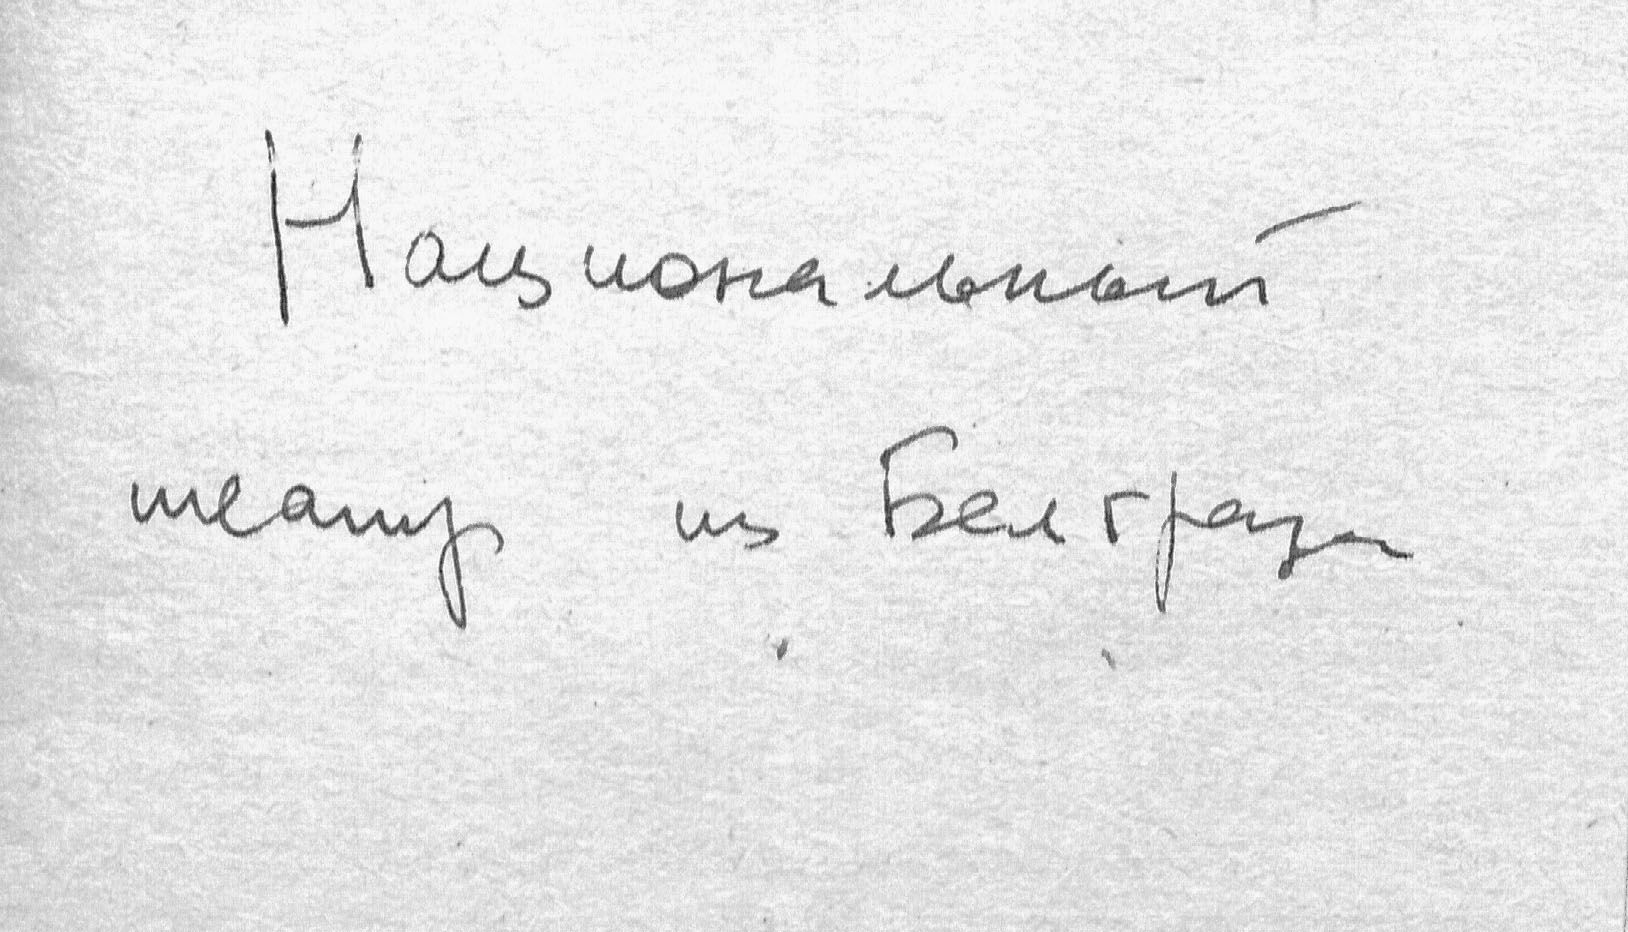 Национальный
театр из Белграда